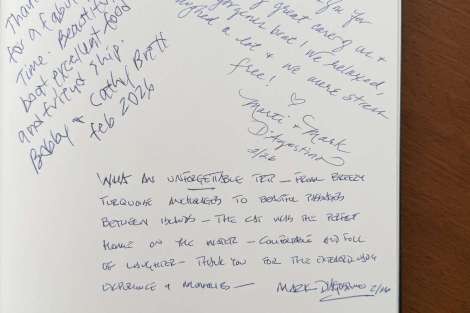 Thank
for a fabul
Time. Beautiful
boat excellent food
and friend ship
Bobby & Cathy Brett
feb 2026
you for
great care of us &
gorgeous boat! We relaxed,
laughed a lot & we were stress
free!
Marti & Mark
D'Agostino
2/26
WHAT AN UNFORGETTABLE TRIP - FROM BREEZY
TURQUOISE ANCHORAGES TO BEAUTIFUL PASSAGES
BETWEEN ISLANDS - THE CAT WAS THE PERFECT
HOME ON THE WATER - COMFORTABLE AND FULL
OF LAUGHTER - THANK YOU FOR THE
EXPERIENCE & MEMORIES - MARK D'AGOSTINO 2/26